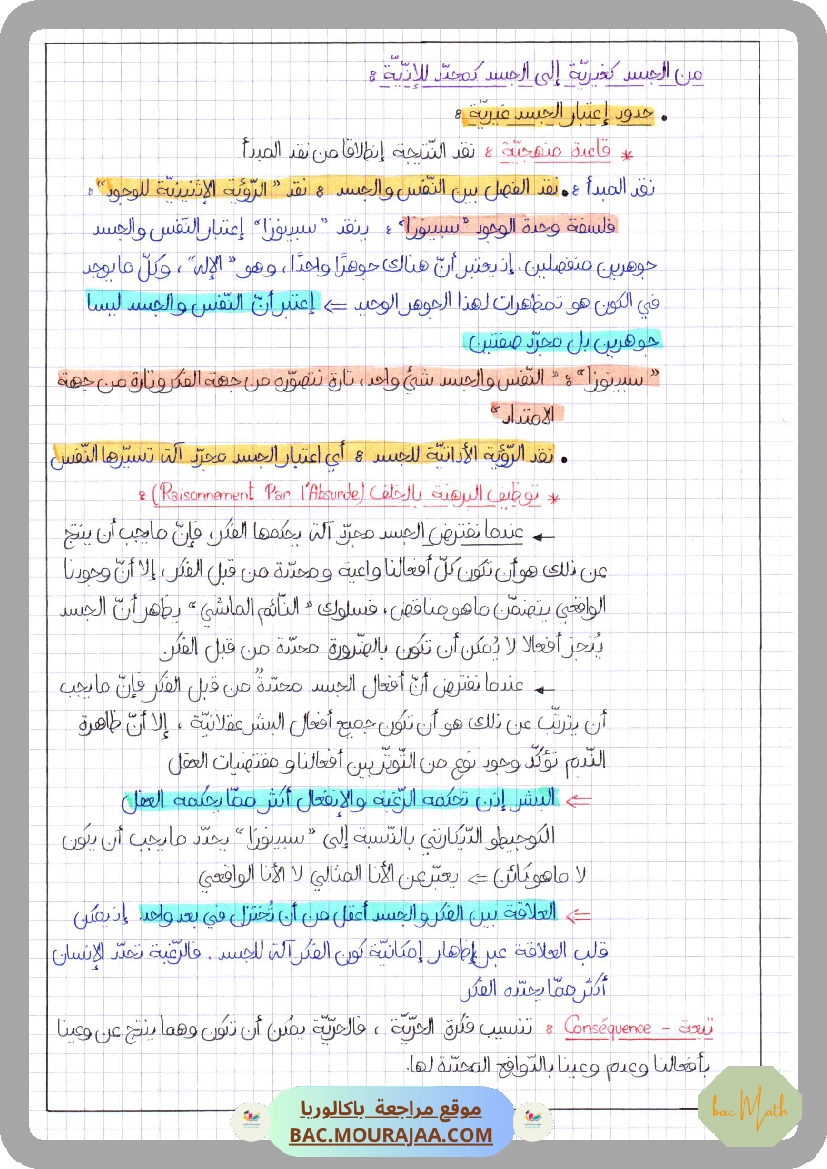 من الجسد كغيريّة إلى الجسد كمحدّد للإنّيّة :
• حدود إعتبار الجسد غيريّة :
* قاعدة منهجيّة : نقد النّتيجة إنطلاقا من نقد المبدأ
نقد المبدأ : • نقد الفصل بين النّفس والجسد : نقد "الرّؤية الإثنينيّة للوجود" :
فلسفة وحدة الوجود "سبينوزا" : ينقد "سبينوزا" إعتبار النّفس والجسد
جوهرين منفصلين. إذ يعتبر أنّ هناك جوهرًا واحدًا، وهو "الإله"، وكلّ ما يوجد
في الكون هو تمظهرات لهذا الجوهر الوحيد ⇐ إعتبر أنّ النّفس والجسد ليسا
جوهرين بل مجرّد صفتين
"سبينوزا" : "النّفس والجسد شيء واحد، تارة نتصوّره من جهة الفكر وتارة من جهة
الامتداد"
• نقد الرّؤية الأداتيّة للجسد : أي اعتبار الجسد مجرّد آلة تسيّرها النّفس
* توظيف البرهنة بالخلف (Raisonnement Par l'Absurde) :
← عندما نفترض الجسد مجرّد آلة يحكمها الفكر، فإنّ ما يجب أن ينتج
عن ذلك هو أن تكون كلّ أفعالنا واعية ومحدّدة من قبل الفكر، إلا أنّ وجودنا
الواقعي يتضمّن ما هو مناقض، فسلوك "النّائم الماشي" يظهر أنّ الجسد
يُنجز أفعالا لا يُمكن أن تكون بالضّرورة محدّدة من قبل الفكر
← عندما نفترض أنّ أفعال الجسد محدّدةٌ من قبل الفكر فإنّ ما يجب
أن يترتّب عن ذلك هو أن تكون جميع أفعال البشر عقلانيّة ، إلا أنّ ظاهرة
النّدم تؤكّد وجود نوع من التّوتّر بين أفعالنا و مقتضيات العقل
⇐ البشر إذن تحكمه الرّغبة والإنفعال أكثر ممّا يحكمه العقل
الكوجيطو الدّيكارتي بالنّسبة إلى "سبينوزا" يحدّد ما يجب أن يكون
لا ما هو كائن ⇐ يعبّر عن الأنا المثالي لا الأنا الواقعي
⇐ العلاقة بين الفكر والجسد أعقل من أن تُختزل في بعد واحد إذ يمكن
قلب العلاقة عبر إظهار إمكانيّة كون الفكر آلة للجسد. فالرّغبة تحدّد الإنسان
أكثر ممّا يحدّده الفكر
تبعة - Conséquence : تنسيب فكرة الحرّيّة ، فالحرّيّة يمكن أن تكون وهما ينتج عن وعينا
بأفعالنا وعدم وعينا بالدّوافع المحدّدة لها.
موقع مراجعة باكالوريا
BAC.MOURAJAA.COM
bac Math